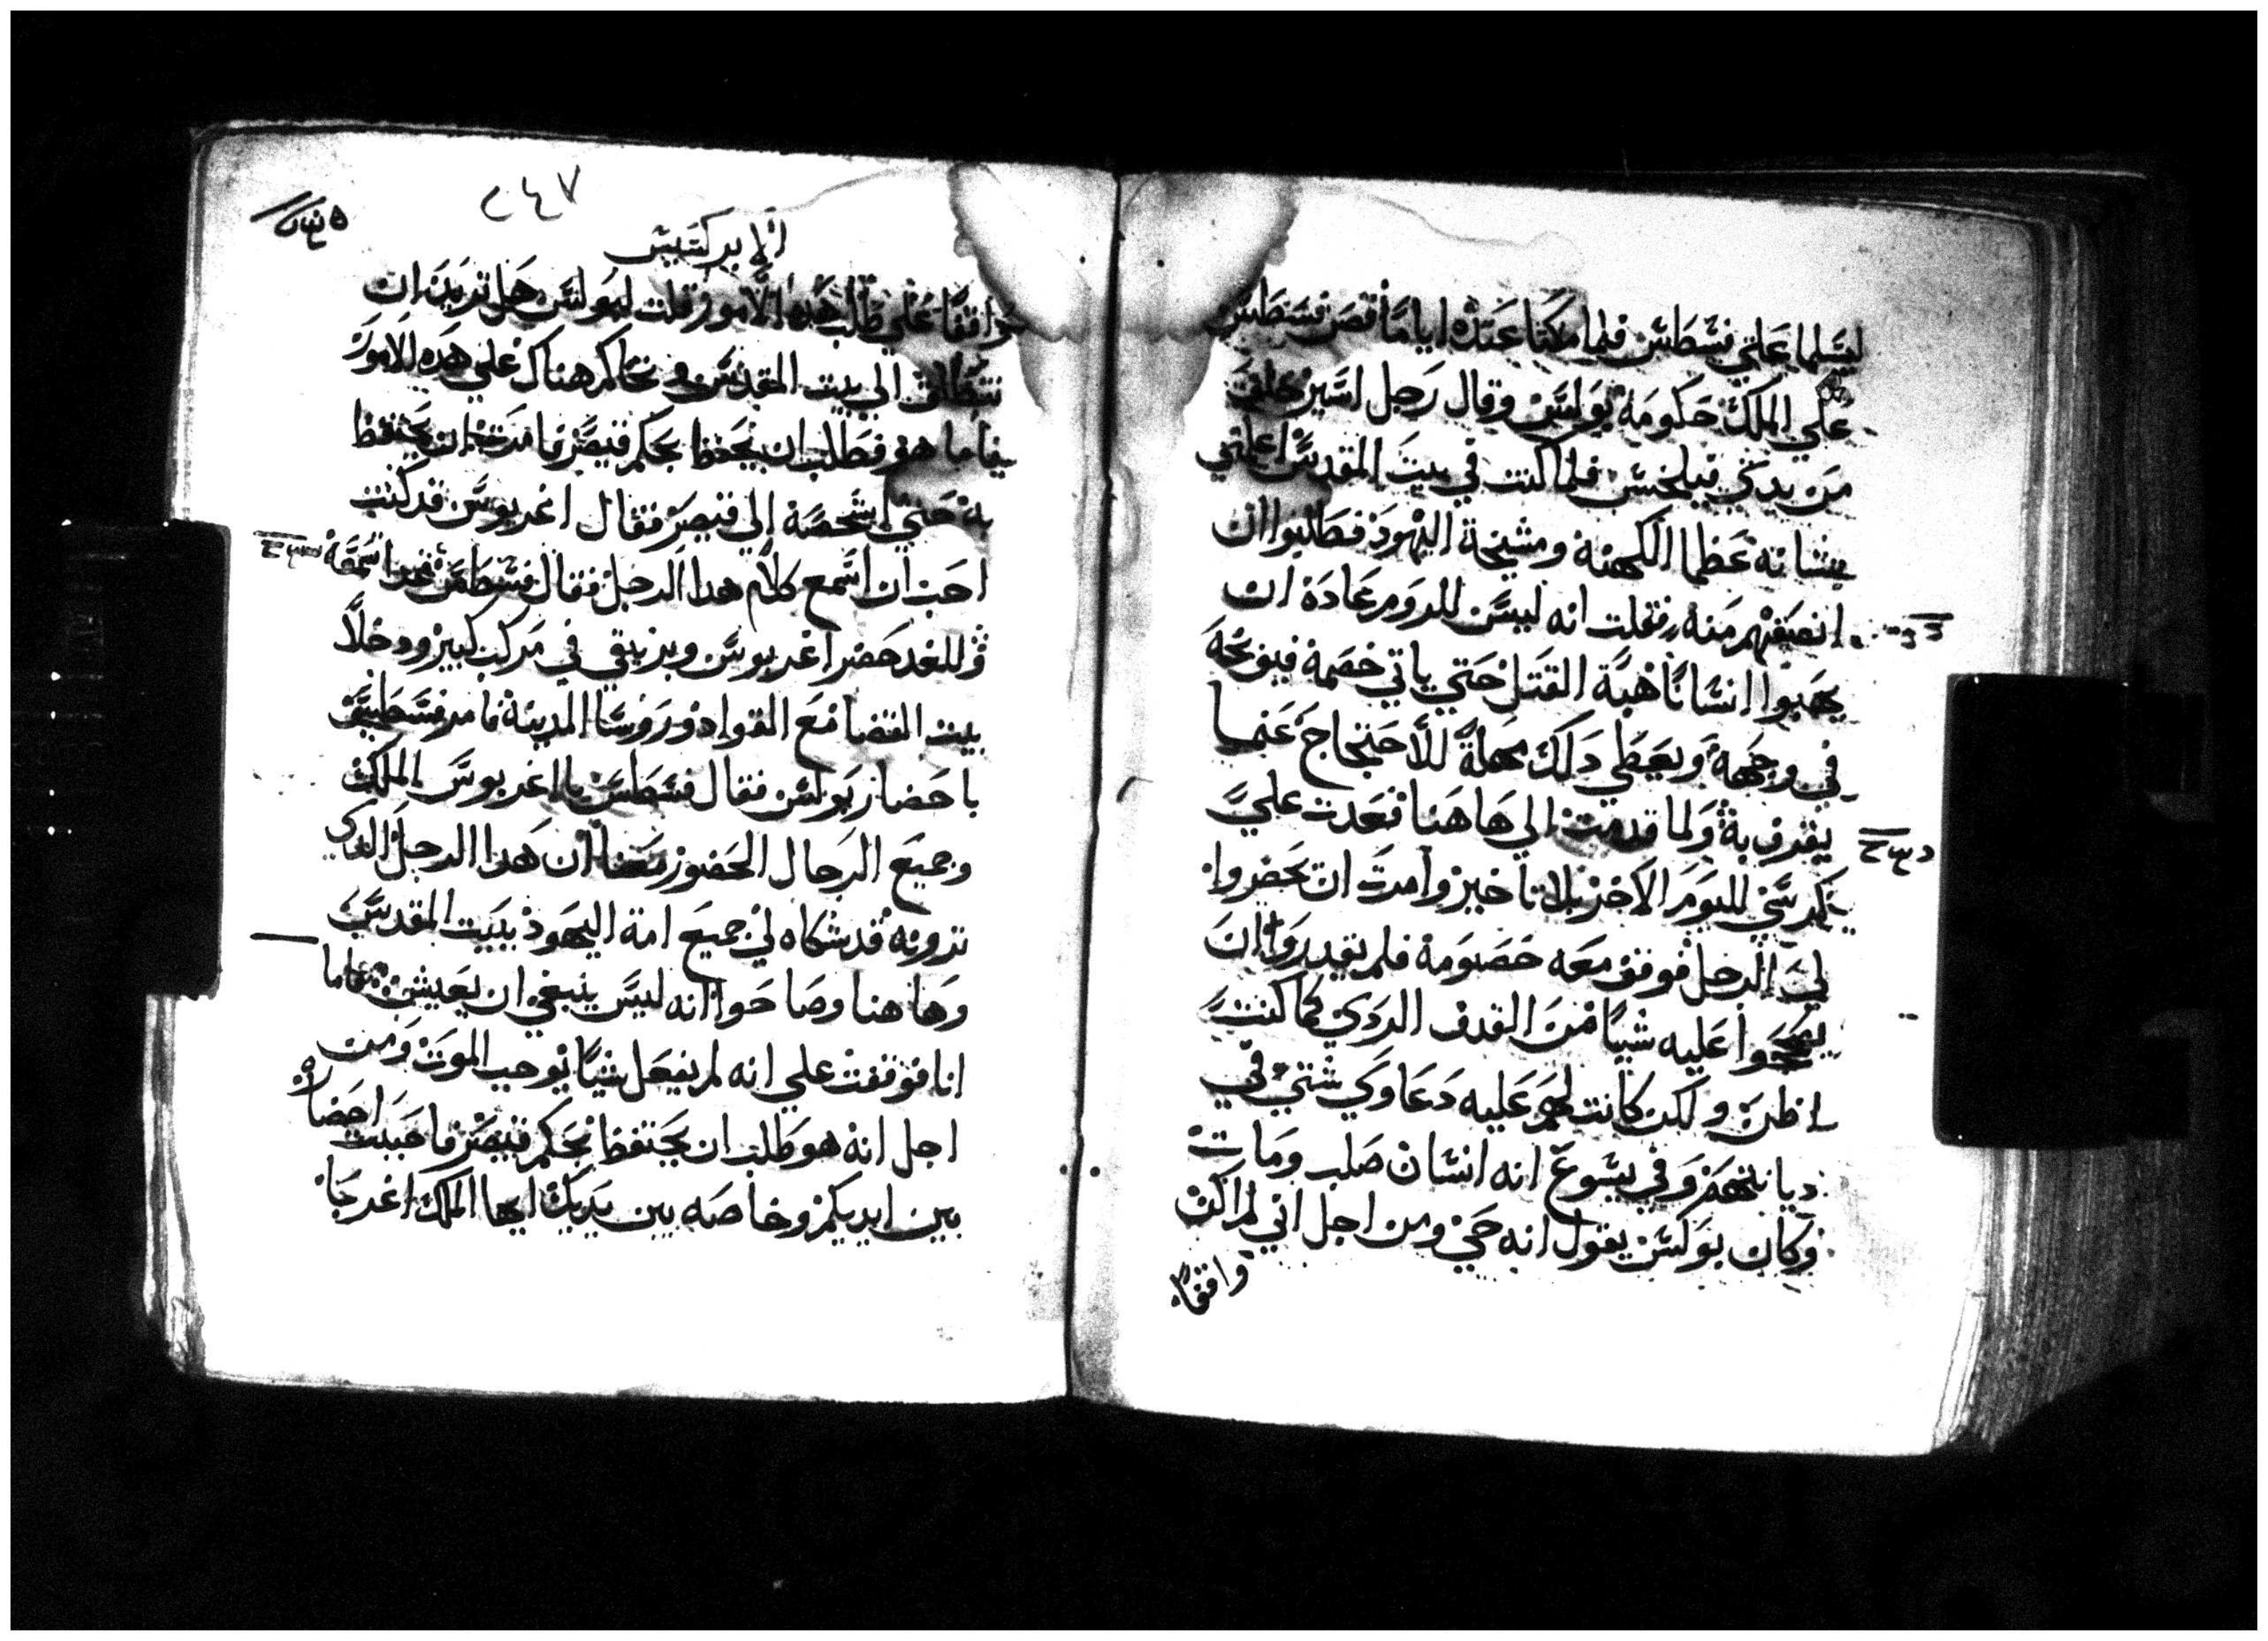 ليسلما علي فسطس فلما مكثا عنده اياما قص فسطس
علي الملك حكومة بولس وقال رجل اسير خلف
من يدي فيلخس فلما كنت في بيت المقدس اعلمني
بشانه عظما الكهنة ومشيخة اليهود فطلبوا ان
انصفهم منه فقلت انه ليس للروم عادة ان
يهبوا انسانا هبة القتل حتي ياتي خصمه فيوبخه
في وجهه ويعطي دلك مهلة للاحتجاج عنما
يقرف به ولما قدمت الي هاهنا قعدت علي
كرسي لليوم الاخر بلا تاخير وامرت ان يحضروا
لي الرجل فوقف معه خصومه فلم يقدروا ان
يصححوا عليه شيا من القدف الردي كما كنت
اظن ولكن كانت لهم عليه دعاوي شتي في
ديانتهم وفي يسوع انه انسان صلب ومات
وكان بولس يقول انه حي ومن اجل اني لم اكن
واقفا
٢٤٧
الابركسيس
واقفا علي طلب هده الامور قلت لبولس هل تريد ان
تنطلق الي بيت المقدس وتحاكم هناك علي هده الامور
فاما هو فطلب ان يحفظ بحكم قيصر فامرت ان يحتفظ
به حتي اشخصه الي قيصر فقال اغربوس قد كنت
احب ان اسمع كلام هدا الرجل فقال فسطس غدا تسمعه
وللغد حضر اغربوس وبرنيقي في مركب كبير ودخلا
بيت القضا مع القواد وروسا المدينة فامر فسطس
باحضار بولس فقال فسطس يا اغربوس الملك
وجميع الرجال الحضور معنا ان هدا الرجل الدي
ترونه قد شكاه لي جميع امة اليهود ببيت المقدس
وهاهنا وصاحوا انه ليس ينبغي ان يعيش فاما
انا فوقفت علي انه لم يفعل شيا يوجب الموت ومن
اجل انه هو طلب ان يحتفظ بحكم قيصر فاحببت احضاره
بين ايديكم وخاصه بين يديك ايها الملك اغربا